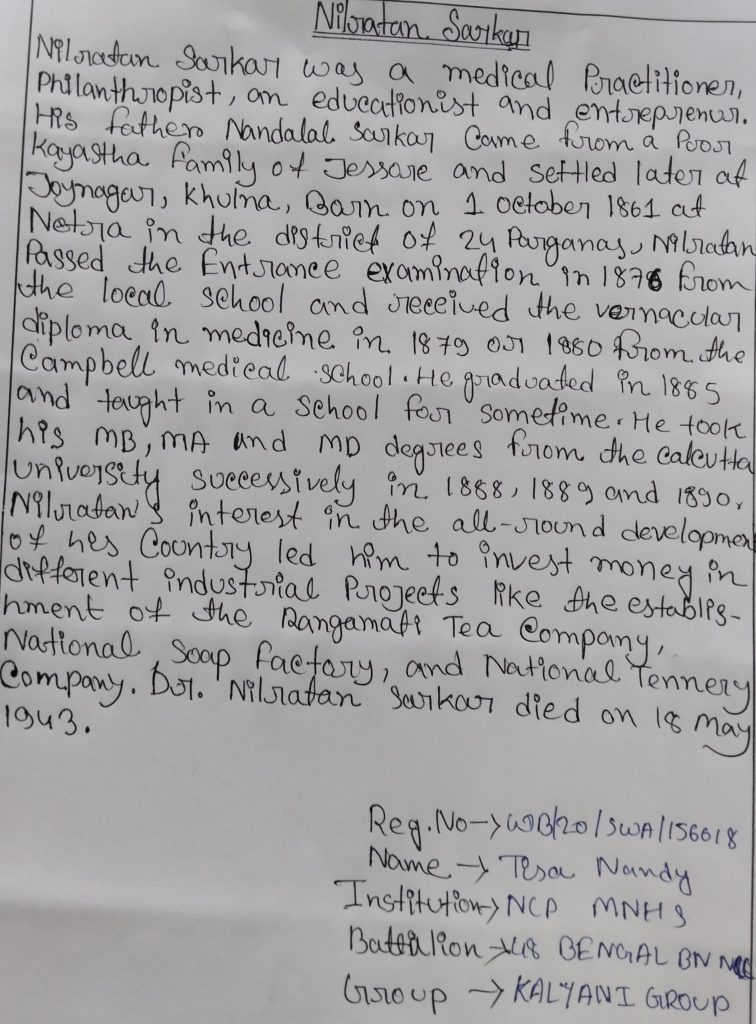 Nilratan Sarkar
Nilratan Sarkar was a medical Practitioner,
Philanthropist, an educationist and entreprenur.
His father Nandalal Sarkar Came from a Poor
Kayastha family of Jessore and settled later at
Joynagar, Khulna, Born on 1 october 1861 at
Netra in the district of 24 Parganas, Nilratan
Passed the Entrance examination in 1876 from
the local school and received the vernacular
diploma in medicine in 1879 or 1880 from the
Campbell medical school. He graduated in 1885
and taught in a School for sometime. He took
his MB, MA and MD degrees from the calcutta
university successively in 1888, 1889 and 1890,
Nilratan's interest in the all-round developmen
of hes Country led him to invest money in
different industrial Projects like the establis-
hment of the Rangamati Tea Company,
National Soap factory, and National Tennery
Company. Dr. Nilratan Sarkar died on 18 may
1943.
Reg.No→WB/20/SWA/156618
Name→ Tisa Nandy
Institution→NCP MNHS
Battalion→48 BENGAL BN
Group →KALYANI GROUP